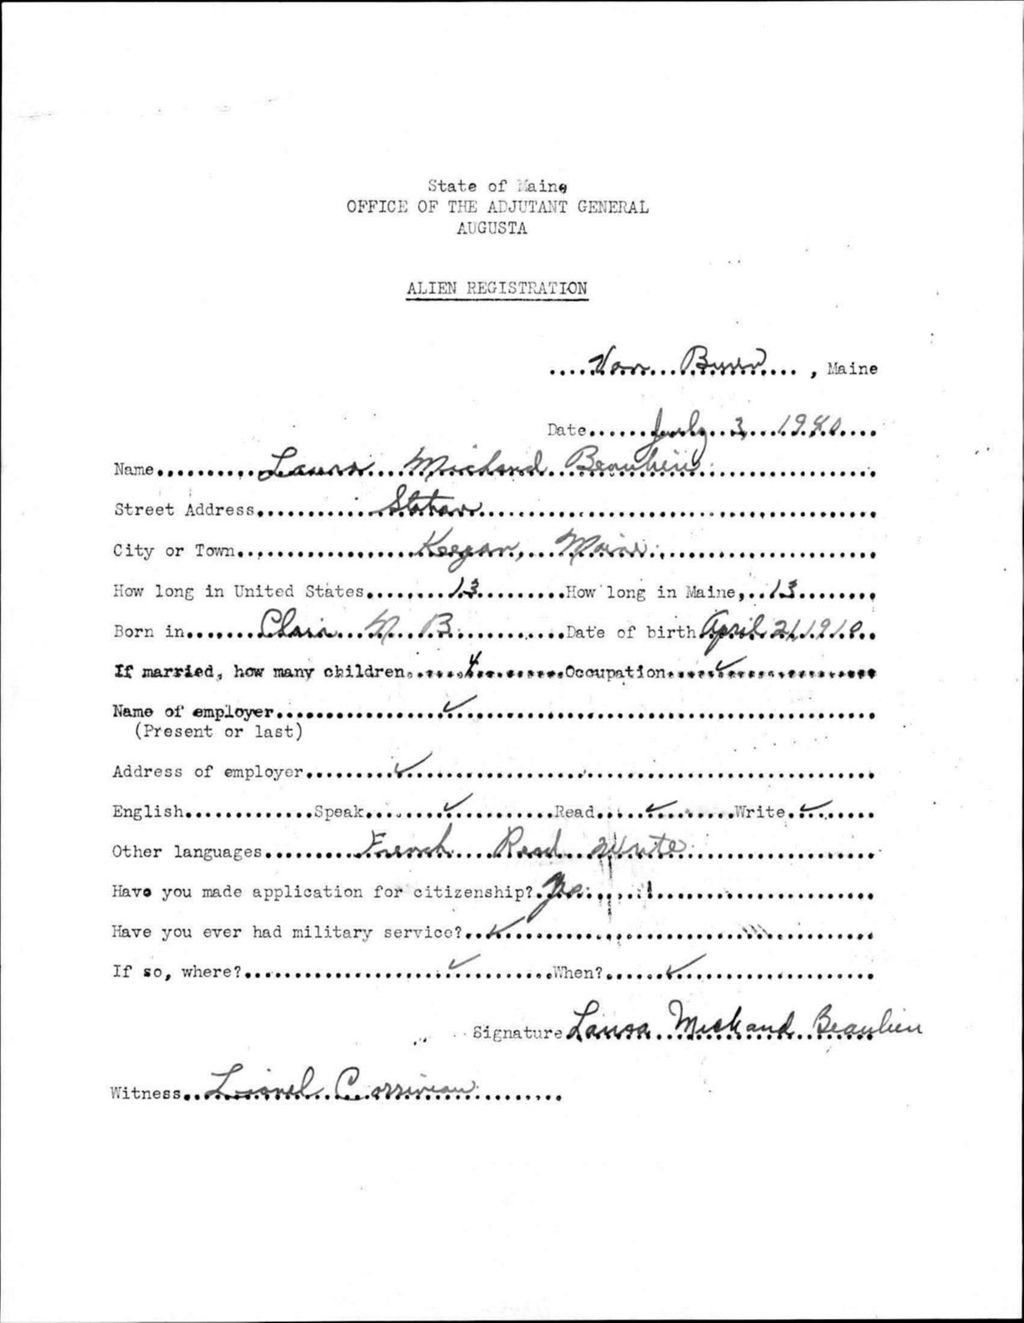 State of Maine
OFFICE OF THE ADJUTANT GENERAL
AUGUSTA
ALIEN REGISTRATION
....Van Buren...., Maine
Date......July 3, 1940....
Name..........Laura Michaud Beaulieu..........
Street Address............
City or Town................Keegan, Maine................
How long in United States........13.........How long in Maine,..13........
Born in.......Clair N. B...........Date of birth April 21, 1910..
If married, how many children......4.........Occupation.....✓...............
Name of employer................✓................
(Present or last)
Address of employer.........✓................
English.............Speak......✓..........Read.....✓........Write.✓......
Other languages.........French....Read..Write................
Have you made application for citizenship?.No................
Have you ever had military service?..✓................
If so, where?....................✓..........When?......✓................
Signature Laura Michaud Beaulieu
Witness..Lionel Corriveau.........